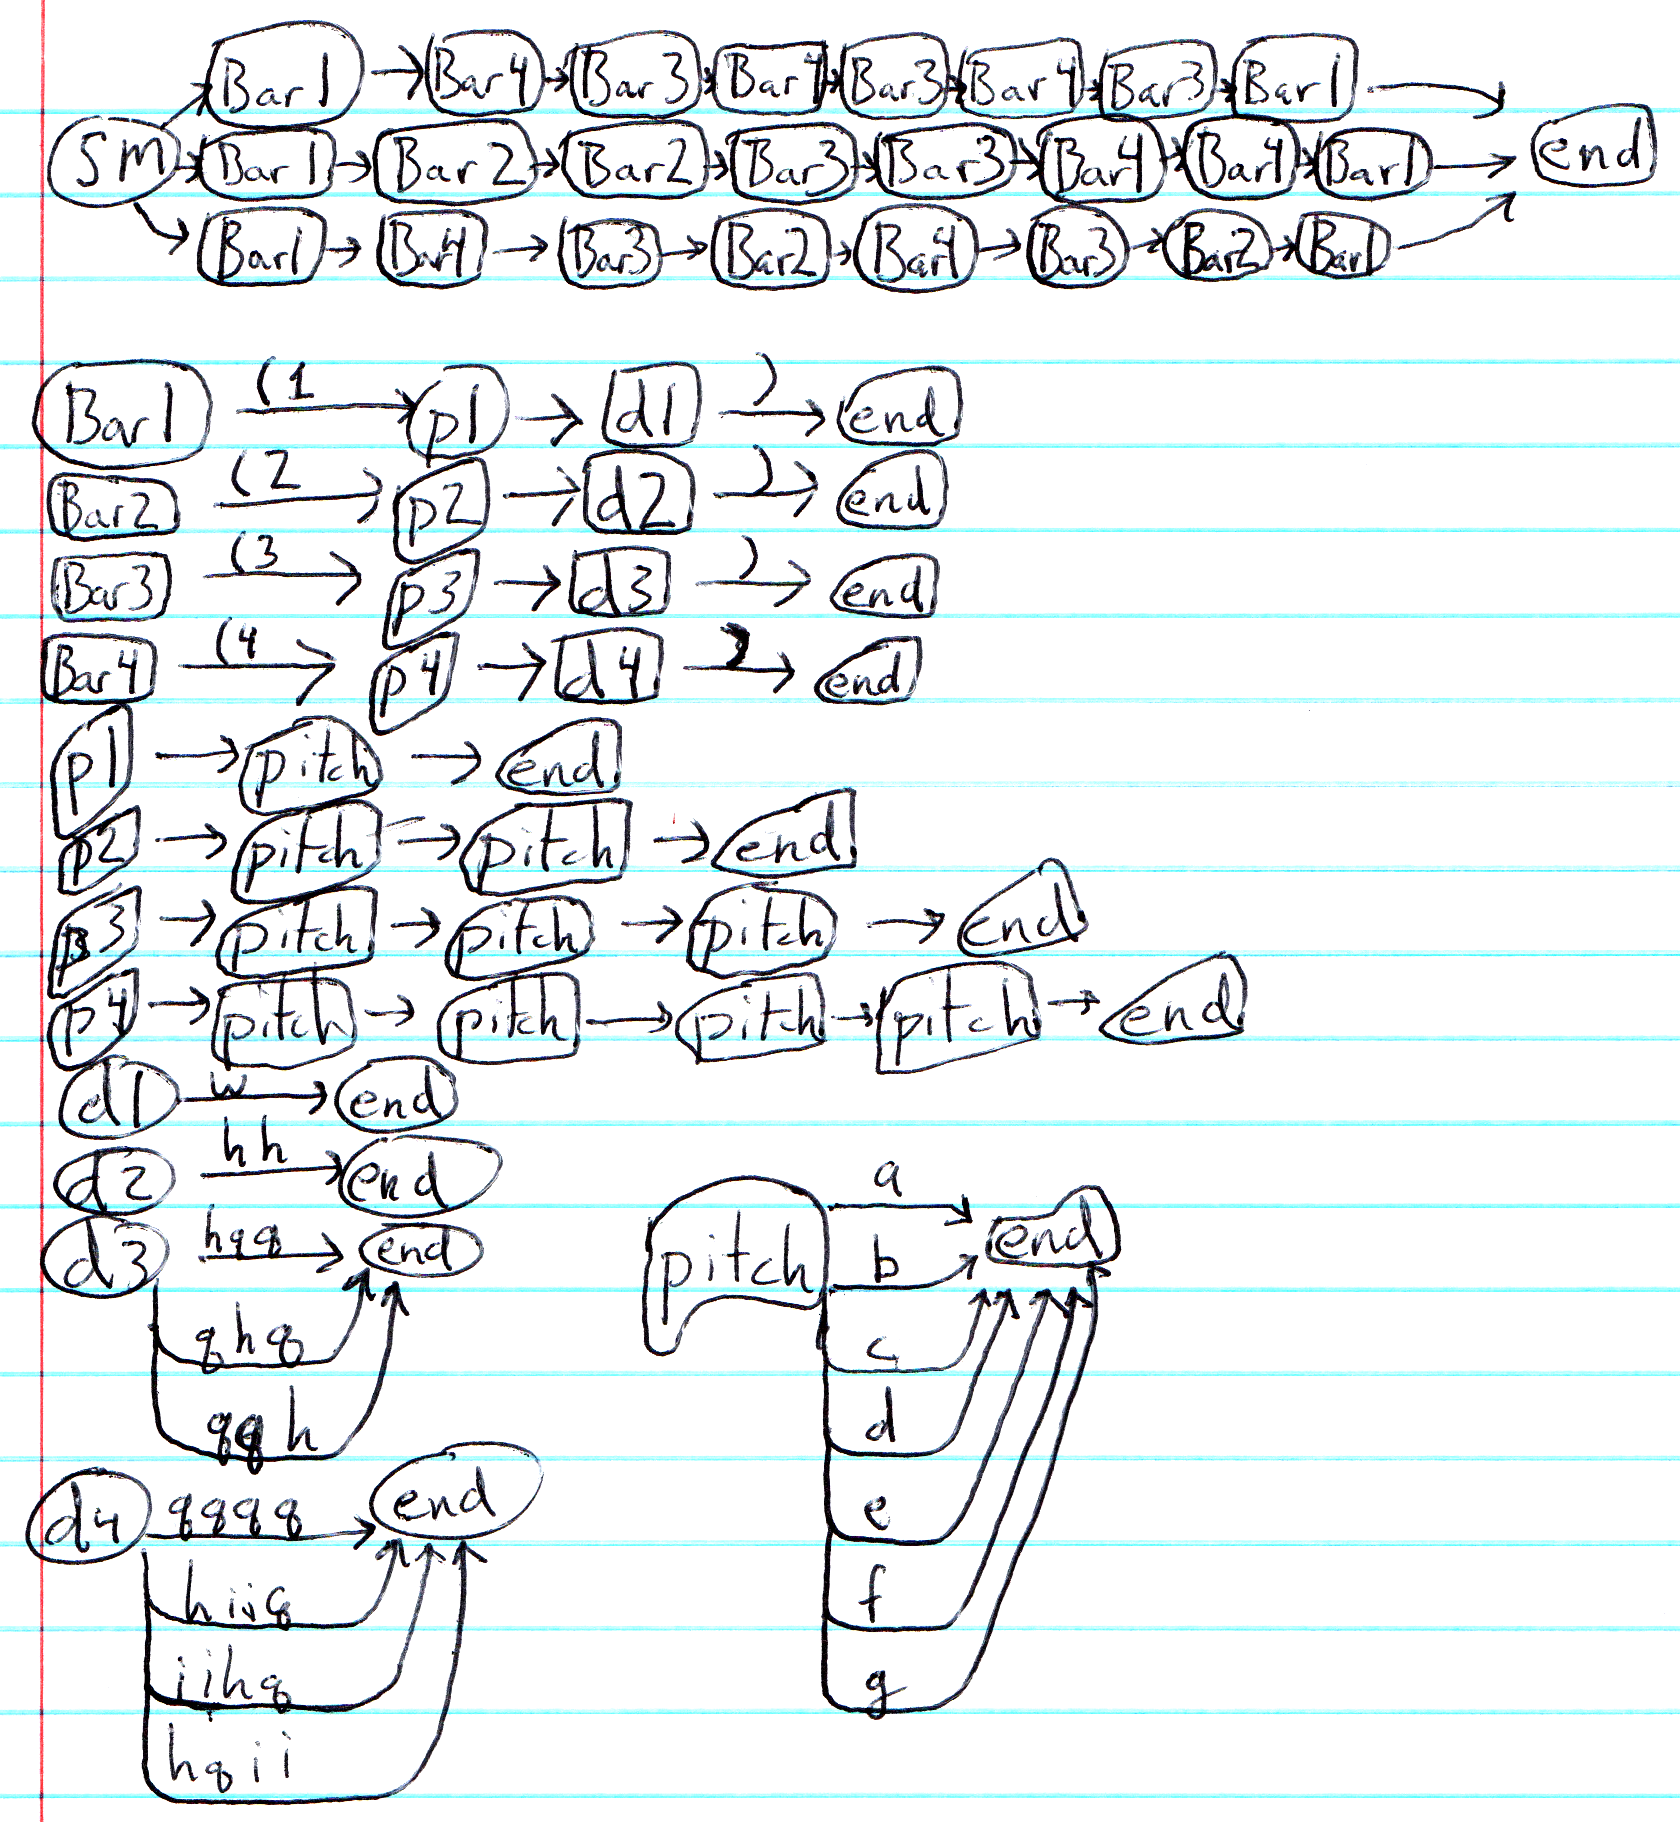 Bar1 Bar4 Bar3 Bar4 Bar3 Bar4 Bar3 Bar1
SM Bar1 Bar2 Bar2 Bar3 Bar3 Bar4 Bar4 Bar1 end
Bar1 Bar4 Bar3 Bar2 Bar4 Bar3 Bar2 Bar1
Bar1 (1 p1 d1 ) end
Bar2 (2 p2 d2 ) end
Bar3 (3 p3 d3 ) end
Bar4 (4 p4 d4 ) end
p1 pitch end
p2 pitch pitch end
p3 pitch pitch pitch end
p4 pitch pitch pitch pitch end
d1 w end
d2 hh end
d3 hqq end
qhq
qqh
d4 qqqq end
hiiq
iihq
hqii
pitch a end
b
c
d
e
f
g